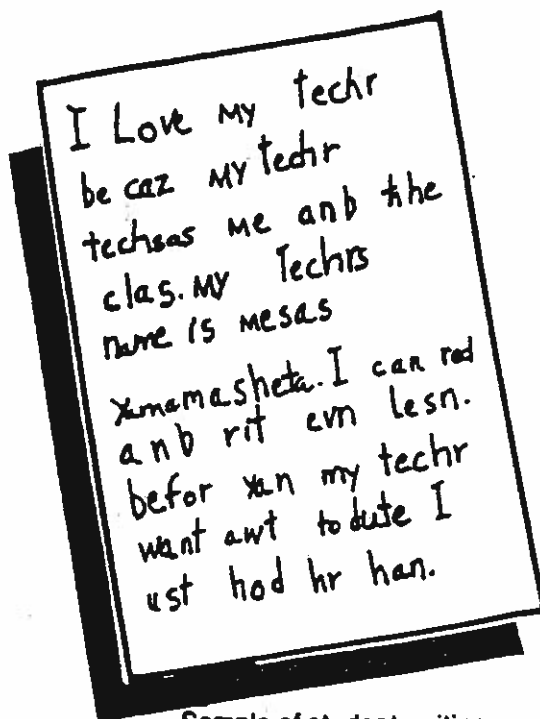 I Love my techr
be caz my techr
techsas me anb the
clas. my Techrs
name is mesas
yamamasheta. I can red
anb rit evn lesn.
befor yan my techr
want awt to dute I
ust hod hr han.
Sample of student writing